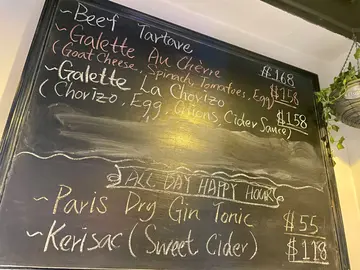 ~Beef Tartare $168
~Galette Au Chèvre $158
(Goat Cheese, Spinach, Tomatoes, Egg)
~Galette La Chorizo $158
(Chorizo, Egg, Onions, Cider Sauce)
ALL DAY HAPPY HOUR
~Paris Dry Gin Tonic $55
~Kerisac (Sweet Cider) $118